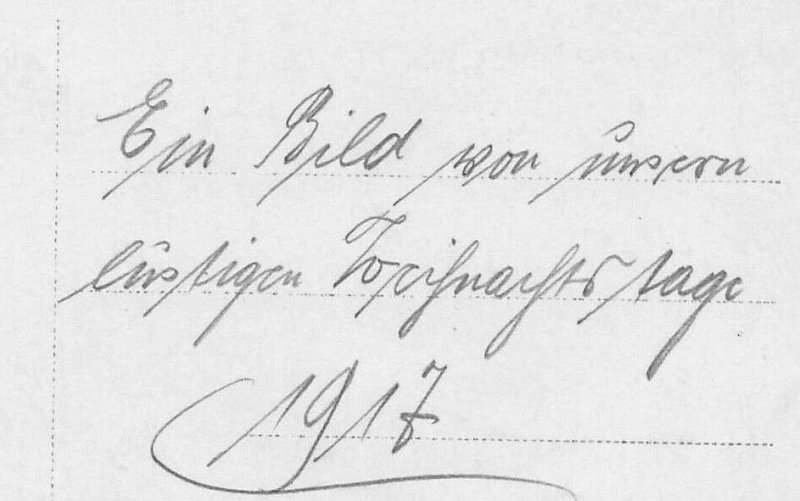 Ein Bild von unsern
lustigen Weihnachtstage
1917